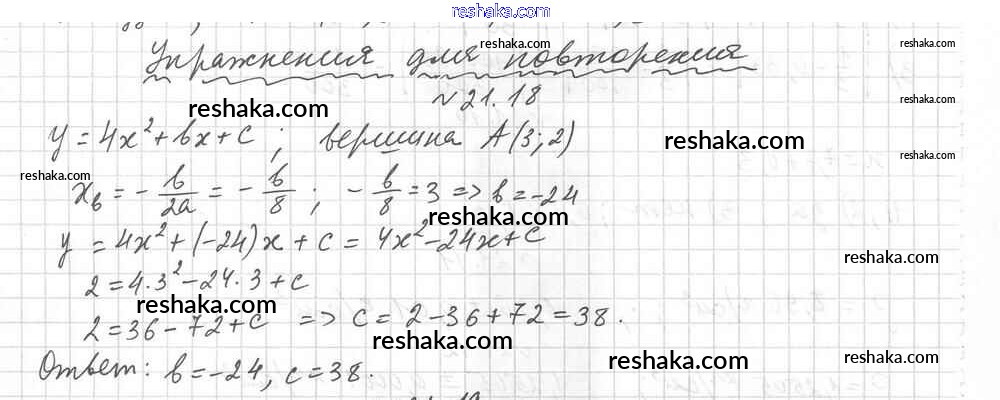 reshaka.com
Упражнения для повторения
reshaka.com
№21.18
reshaka.com
reshaka.com
y=4x²+bx+c; вершина A(3;2)
reshaka.com
reshaka.com
reshaka.com
x_в = -b/2a = -b/8; -b/8=3 => b=-24
reshaka.com
y=4x²+(-24)x+c=4x²-24x+c
reshaka.com
2=4·3²-24·3+c
reshaka.com
2=36-72+c => c=2-36+72=38.
reshaka.com
reshaka.com
reshaka.com
Ответ: b=-24, c=38.